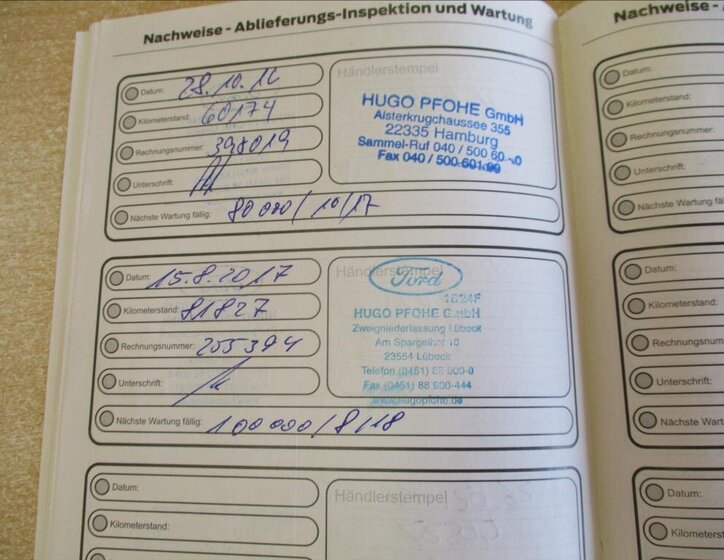 Nachweise - Ablieferungs-Inspektion und Wartung
Nachweise - A
Datum: 28.10.16
Händlerstempel
Kilometerstand: 60174
Rechnungsnummer: 398019
Unterschrift:
Nächste Wartung fällig: 80000/10/17
HUGO PFOHE GmbH
Alsterkrugchaussee 355
22335 Hamburg
Sammel-Ruf 040 / 500 60-0
Fax 040 /
Datum: 15.8.2017
Händlerstempel
Kilometerstand: 81827
Rechnungsnummer: 205394
Unterschrift:
Nächste Wartung fällig: 100000/8/18
Ford
HUGO PFOHE GmbH
Zweigniederlassung Lübeck
Am Spargelhof 10
23554 Lübeck
Telefon (0451) 88 900-0
Fax (0451) 88 900-444
www.hugopfohe.de
Datum:
Händlerstempel
Kilometerstand:
Datum:
Kilometerstand:
Rechnungsnummer:
Unterschrift:
Nächste Wartung fäl
Datum:
Kilometerstand:
Rechnungsnumm
Unterschrift:
Nächste Wartung
Datum:
Kilometerstan